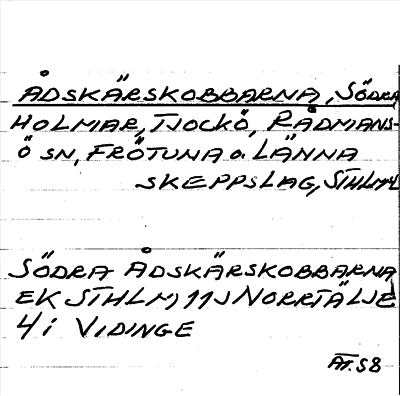 ÅDSKÄRSKOBBARNA, SÖDRA
HOLMAR, TJOCKÖ, RÅDMANS-
Ö SN, FRÖTUNA o. LÄNNA
SKEPPSLAG, STHLM L
SÖDRA ÅDSKÄRSKOBBARNA
EK STHLM, 11J NORRTÄLJE
4 i VIDINGE
AT. S8